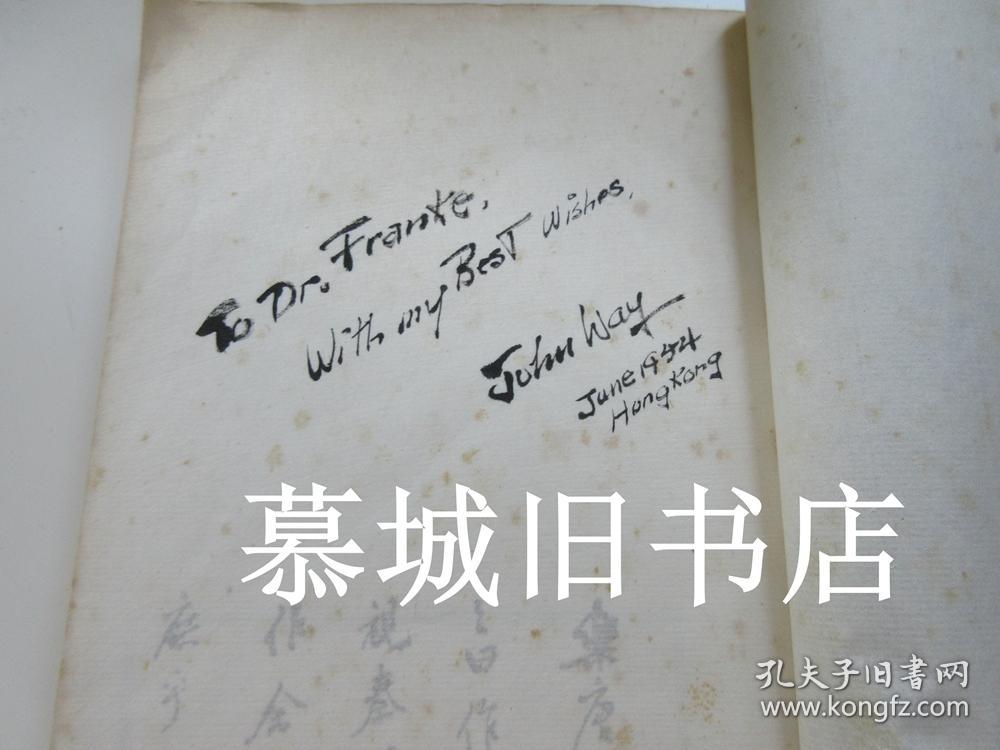 To Dr. Franke,
With my Best Wishes,
John Way
June 1954
Hong Kong
慕城旧书店
作
作
孔夫子旧书网
www.kongfz.com